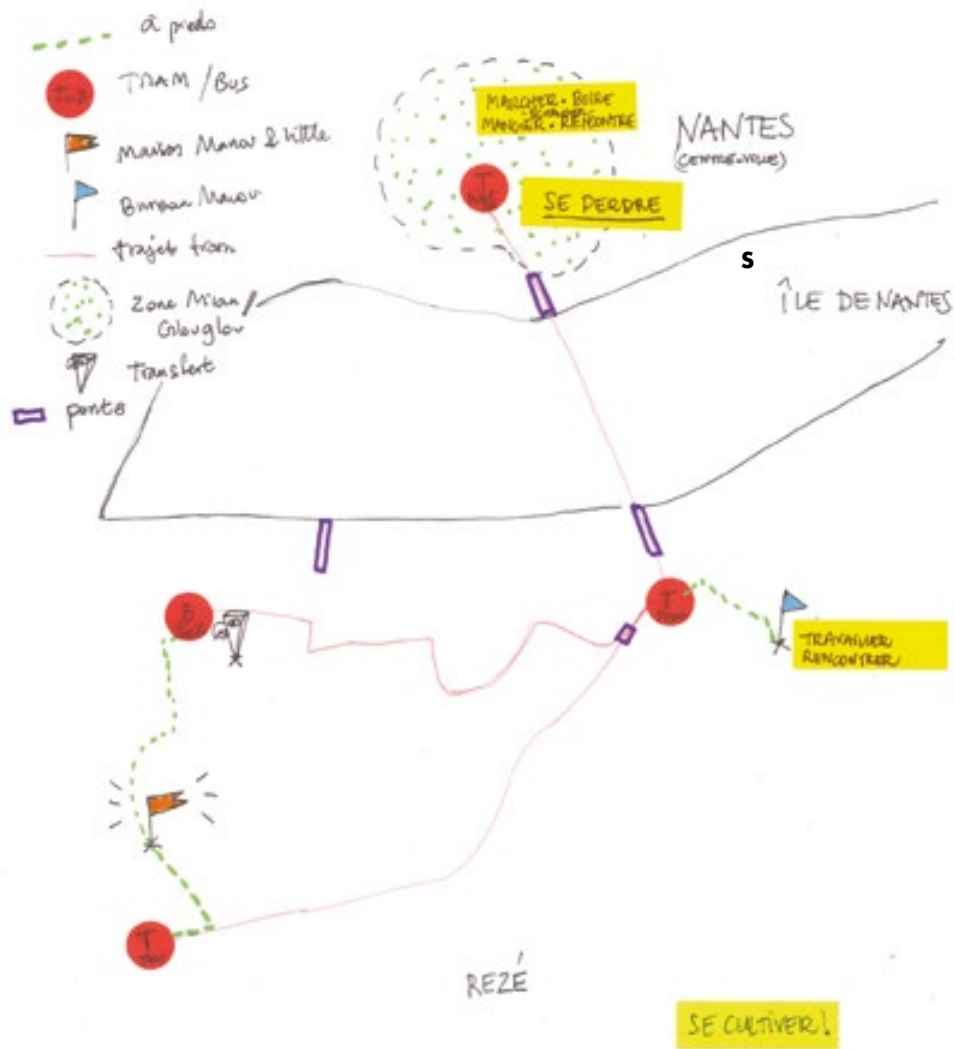 à pieds
TRAM / BUS
Maison Manou & little
Bureau Manou
trajet tram
Zone Miam/
Glouglou
Transfert
ponts
MARCHER - BOIRE
MANGER - RENCONTRE
NANTES
(CENTRE-VILLE)
T
SE PERDRE
S
ÎLE DE NANTES
B
T
TRAVAILLER
RENCONTRER
T
REZÉ
SE CULTIVER!